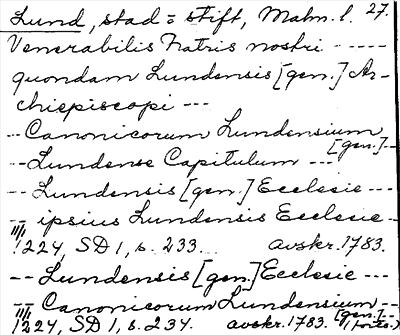 Lund, stad o stift, Malm. l. 27.
Venerabilis Fratris nostri -----
quondam Lundensis [gen.] Ar-
chiepiscopi ---
-- Canonicorum Lundensium
[gen.] --
-- Lundense Capitulum ---
-- Lundensis [gen.] Ecclesie ---
-- ipsius Lundensis Ecclesie --
11/1 1224, SD 1, s. 233. avskr. 1783.
-- Lundensis [gen.] Ecclesie ---
-- Canonicorum Lundensium --
[gen.] --
11/1 1224, SD 1, s. 234. avskr. 1783.